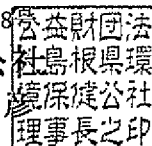 8
公益財団法
人島根県環
境保健公社
理事長之印
社
彦